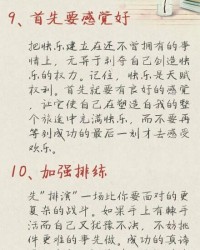 9、首先要感觉好
把快乐建立在还不曾拥有的事
情上，无异于剥夺自己创造快
乐的权力。记住，快乐是天赋
权利。首先就要有良好的感觉
，让它使自己在塑造自我的整
个旅途中充满快乐，而不要再
等到成功的最后一刻才去感受
欢乐。
10、加强排练
先“排演”一场比你要面对的更
复杂的战斗。如果手上有棘手
活而自己又犹豫不决，不妨挑
件更难的事先做。成功的真谛